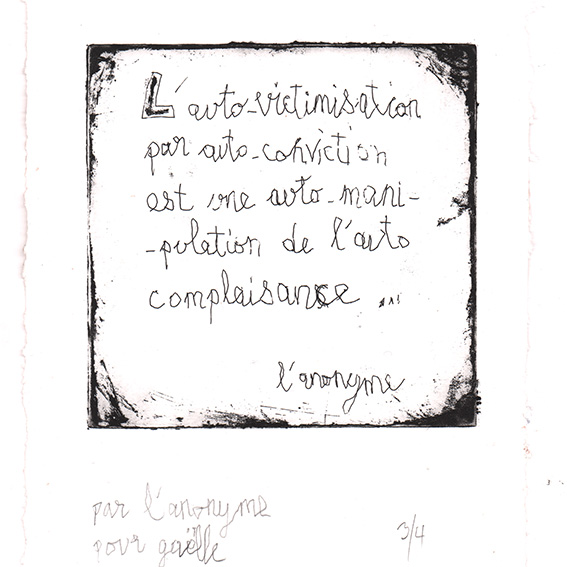 L'auto-victimisation
par auto-conviction
est une auto-mani-
-pulation de l'auto
complaisance ...
l'anonyme
par l'anonyme
pour gaëlle
3/4